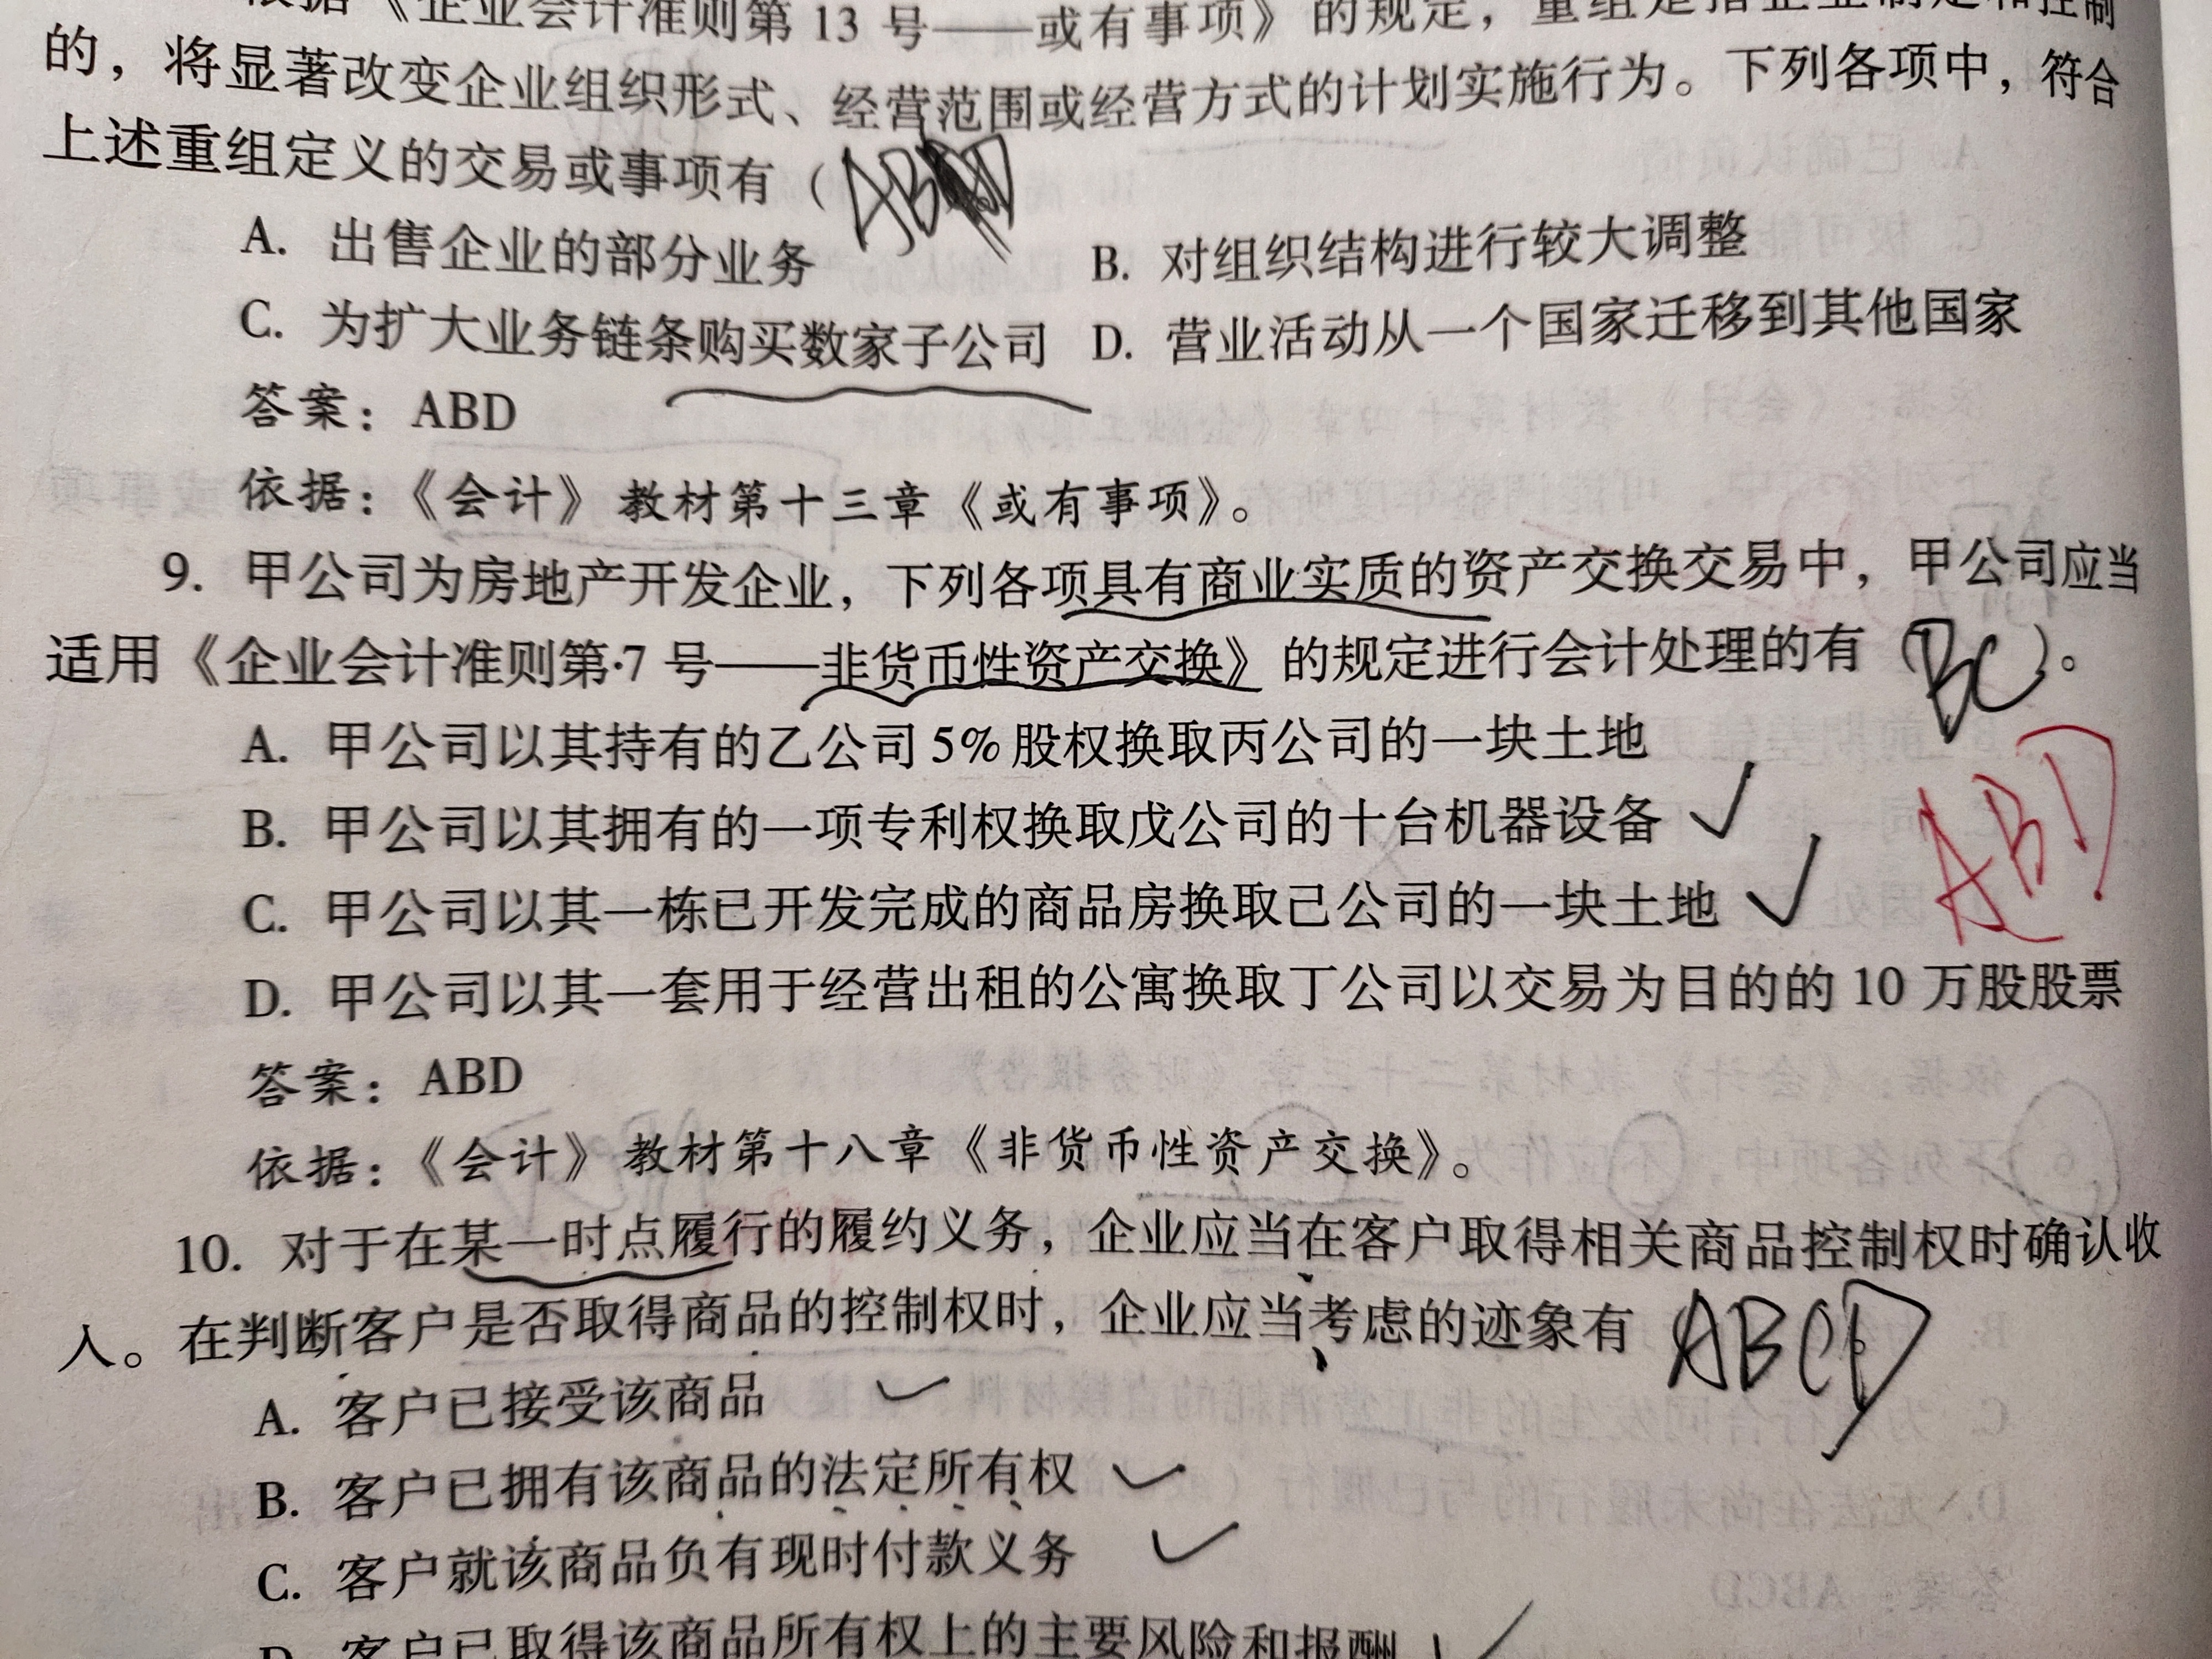 依据《企业会计准则第 13 号——或有事项》的规定，重组是指企业制定和控制
的，将显著改变企业组织形式、经营范围或经营方式的计划实施行为。下列各项中，符合
上述重组定义的交易或事项有（
A. 出售企业的部分业务 B. 对组织结构进行较大调整
C. 为扩大业务链条购买数家子公司 D. 营业活动从一个国家迁移到其他国家
答案：ABD
依据：《会计》教材第十三章《或有事项》。
9. 甲公司为房地产开发企业，下列各项具有商业实质的资产交换交易中，甲公司应当
适用《企业会计准则第·7 号——非货币性资产交换》的规定进行会计处理的有（BC）。
A. 甲公司以其持有的乙公司 5% 股权换取丙公司的一块土地
B. 甲公司以其拥有的一项专利权换取戊公司的十台机器设备 ✓
ABD
C. 甲公司以其一栋已开发完成的商品房换取己公司的一块土地 ✓
D. 甲公司以其一套用于经营出租的公寓换取丁公司以交易为目的的 10 万股股票
答案：ABD
依据：《会计》教材第十八章《非货币性资产交换》。
10. 对于在某一时点履行的履约义务，企业应当在客户取得相关商品控制权时确认收
入。在判断客户是否取得商品的控制权时，企业应当考虑的迹象有 ABCD
A. 客户已接受该商品 ✓
B. 客户已拥有该商品的法定所有权 ✓
C. 客户就该商品负有现时付款义务 ✓
D. 客户已取得该商品所有权上的主要风险和报酬 ✓